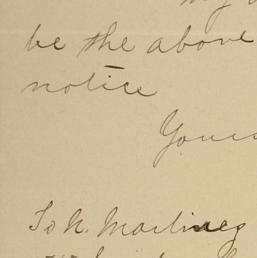 be the above
notice
Yours
To N. Martinez